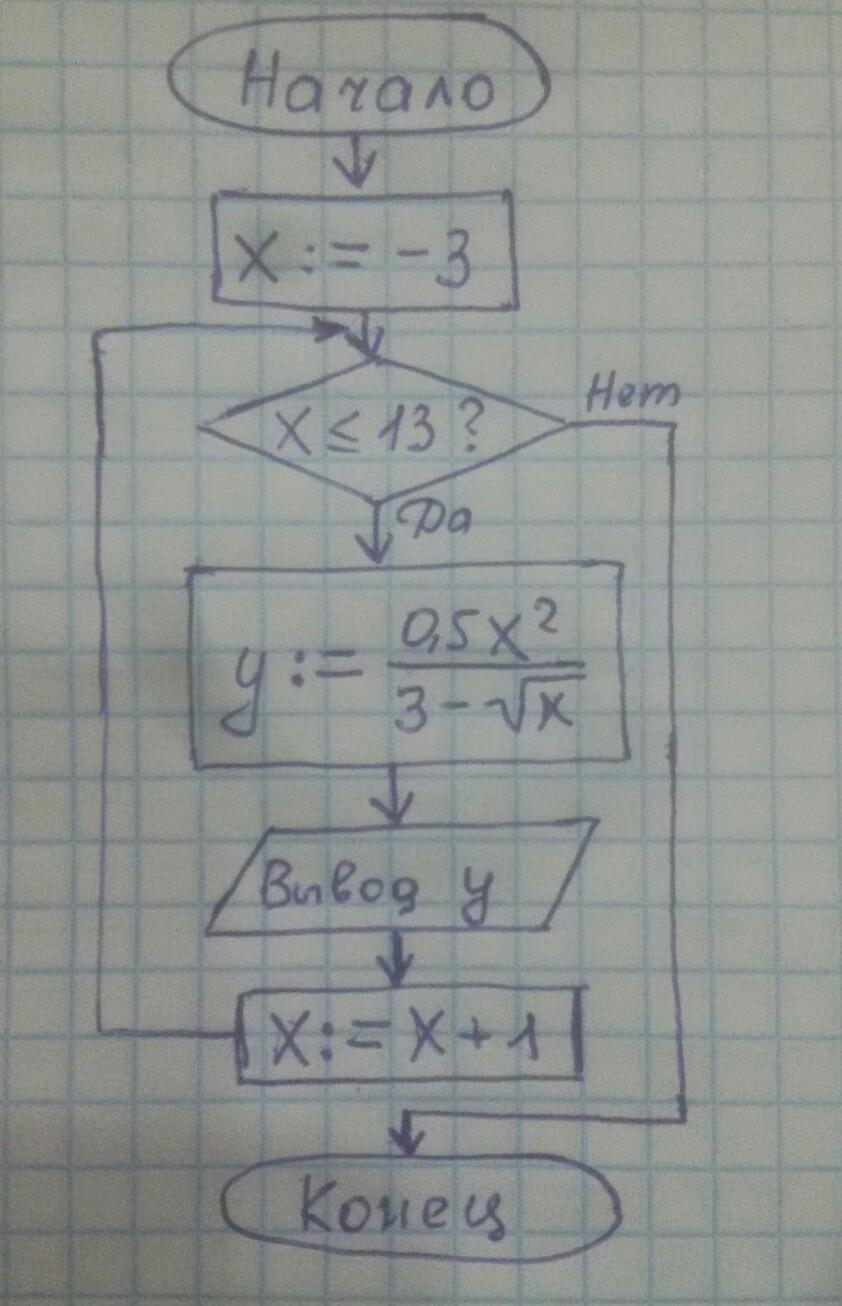 Начало
X := -3
X ≤ 13 ?
Нет
Да
y := 0,5x² / 3 - √x
Вывод y
X := X + 1
Конец